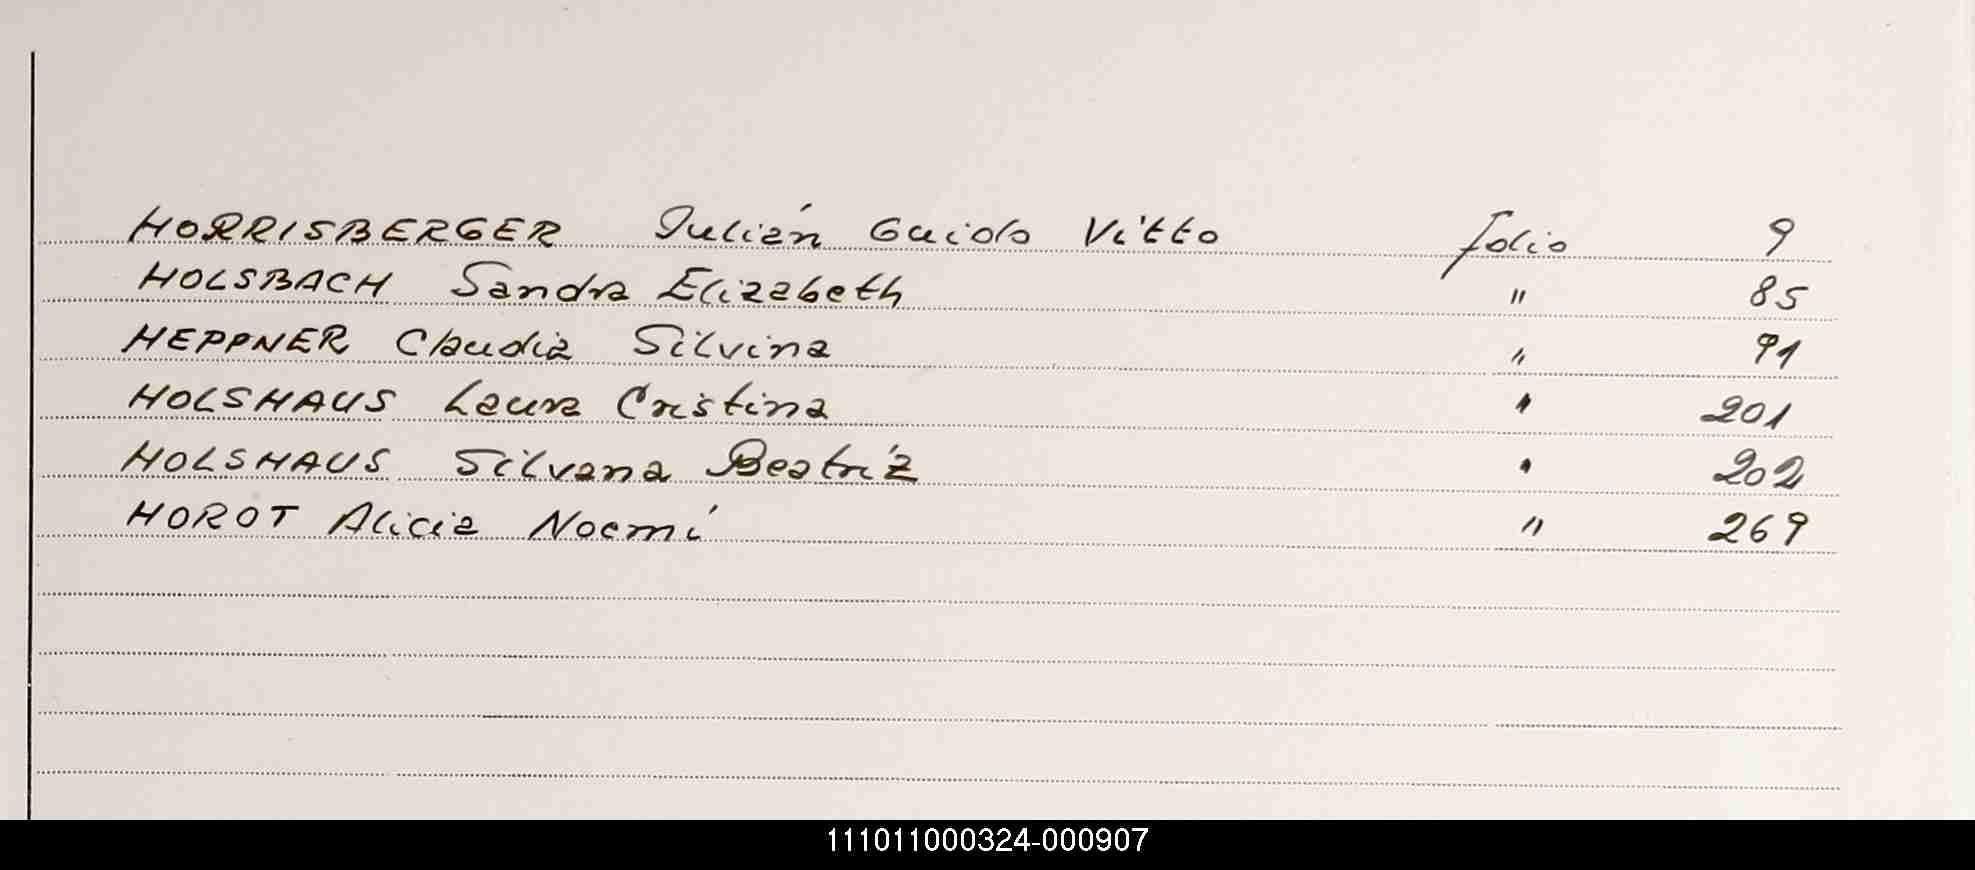 HORRISBERGER Julián Guido Vitto folio 9
HOLSBACH Sandra Elizabeth " 85
HEPPNER Claudia Silvina " 91
HOLSHAUS Laura Cristina " 201
HOLSHAUS Silvana Beatríz " 202
HOROT Alicia Noemí " 269
111011000324-000907